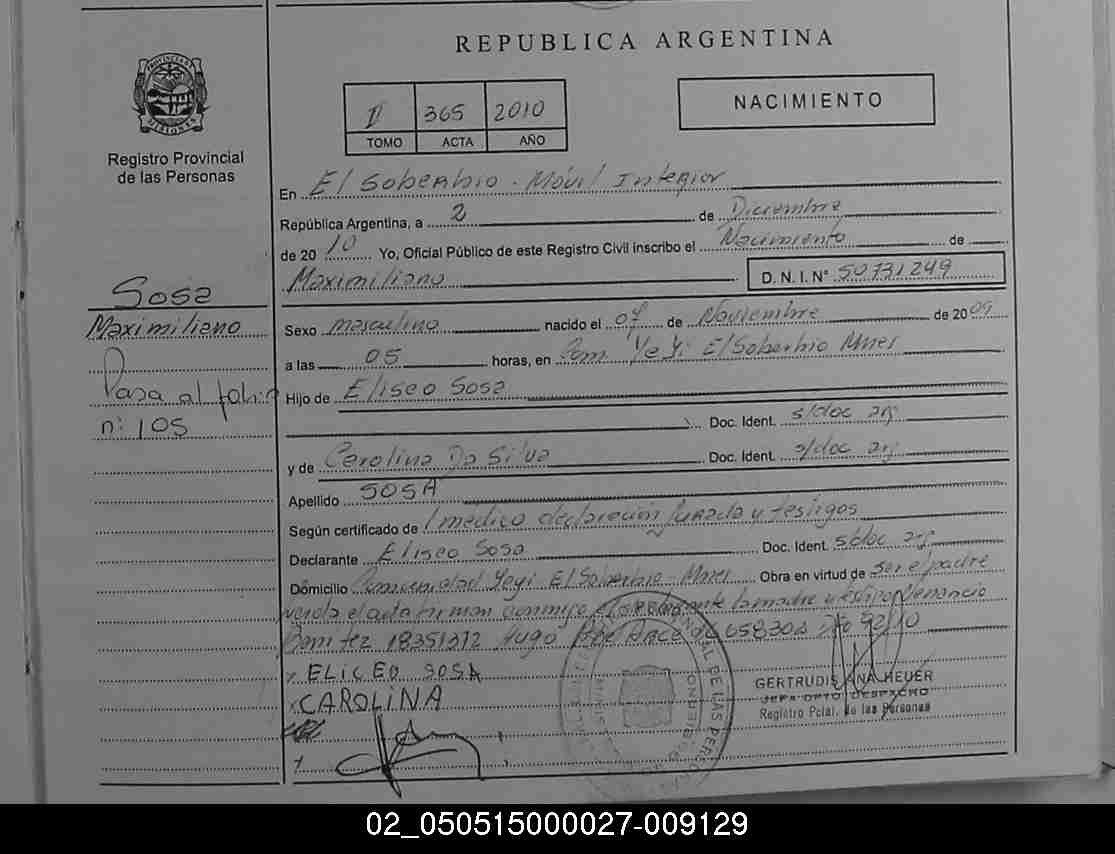 REPUBLICA ARGENTINA
PROVINCIA DE MISIONES
Registro Provincial
de las Personas
II 365 2010
TOMO ACTA AÑO
NACIMIENTO
En El Soberbio - Móvil Interior
República Argentina, a 2 de Diciembre
de 20 10 Yo, Oficial Público de este Registro Civil inscribo el Nacimiento de
Maximiliano D. N. I. N° 50731249
Sosa
Maximiliano
Pasa al folio
n: 105
Sexo masculino nacido el 07 de Noviembre de 2009
a las 05 horas, en Com. Yeyi El Soberbio Mnes
Hijo de Eliseo Sosa
Doc. Ident. s/doc arg
y de Carolina Da Silva Doc. Ident. s/doc arg
Apellido SOSA
Según certificado de 1 médico declaración Jurada y testigos
Declarante Eliseo Sosa Doc. Ident. s/doc arg
Domicilio Comunidad Yeyi El Soberbio - Mnes Obra en virtud de ser el padre
el acta firman conmigo el la madre y Venancio
Benitez 18351312 Hugo
ELICEO SOSA
CAROLINA
GERTRUDIS ANA HEUER
JEFA DPTO DESPACHO
Registro Pcial. de las Personas
02_050515000027-009129